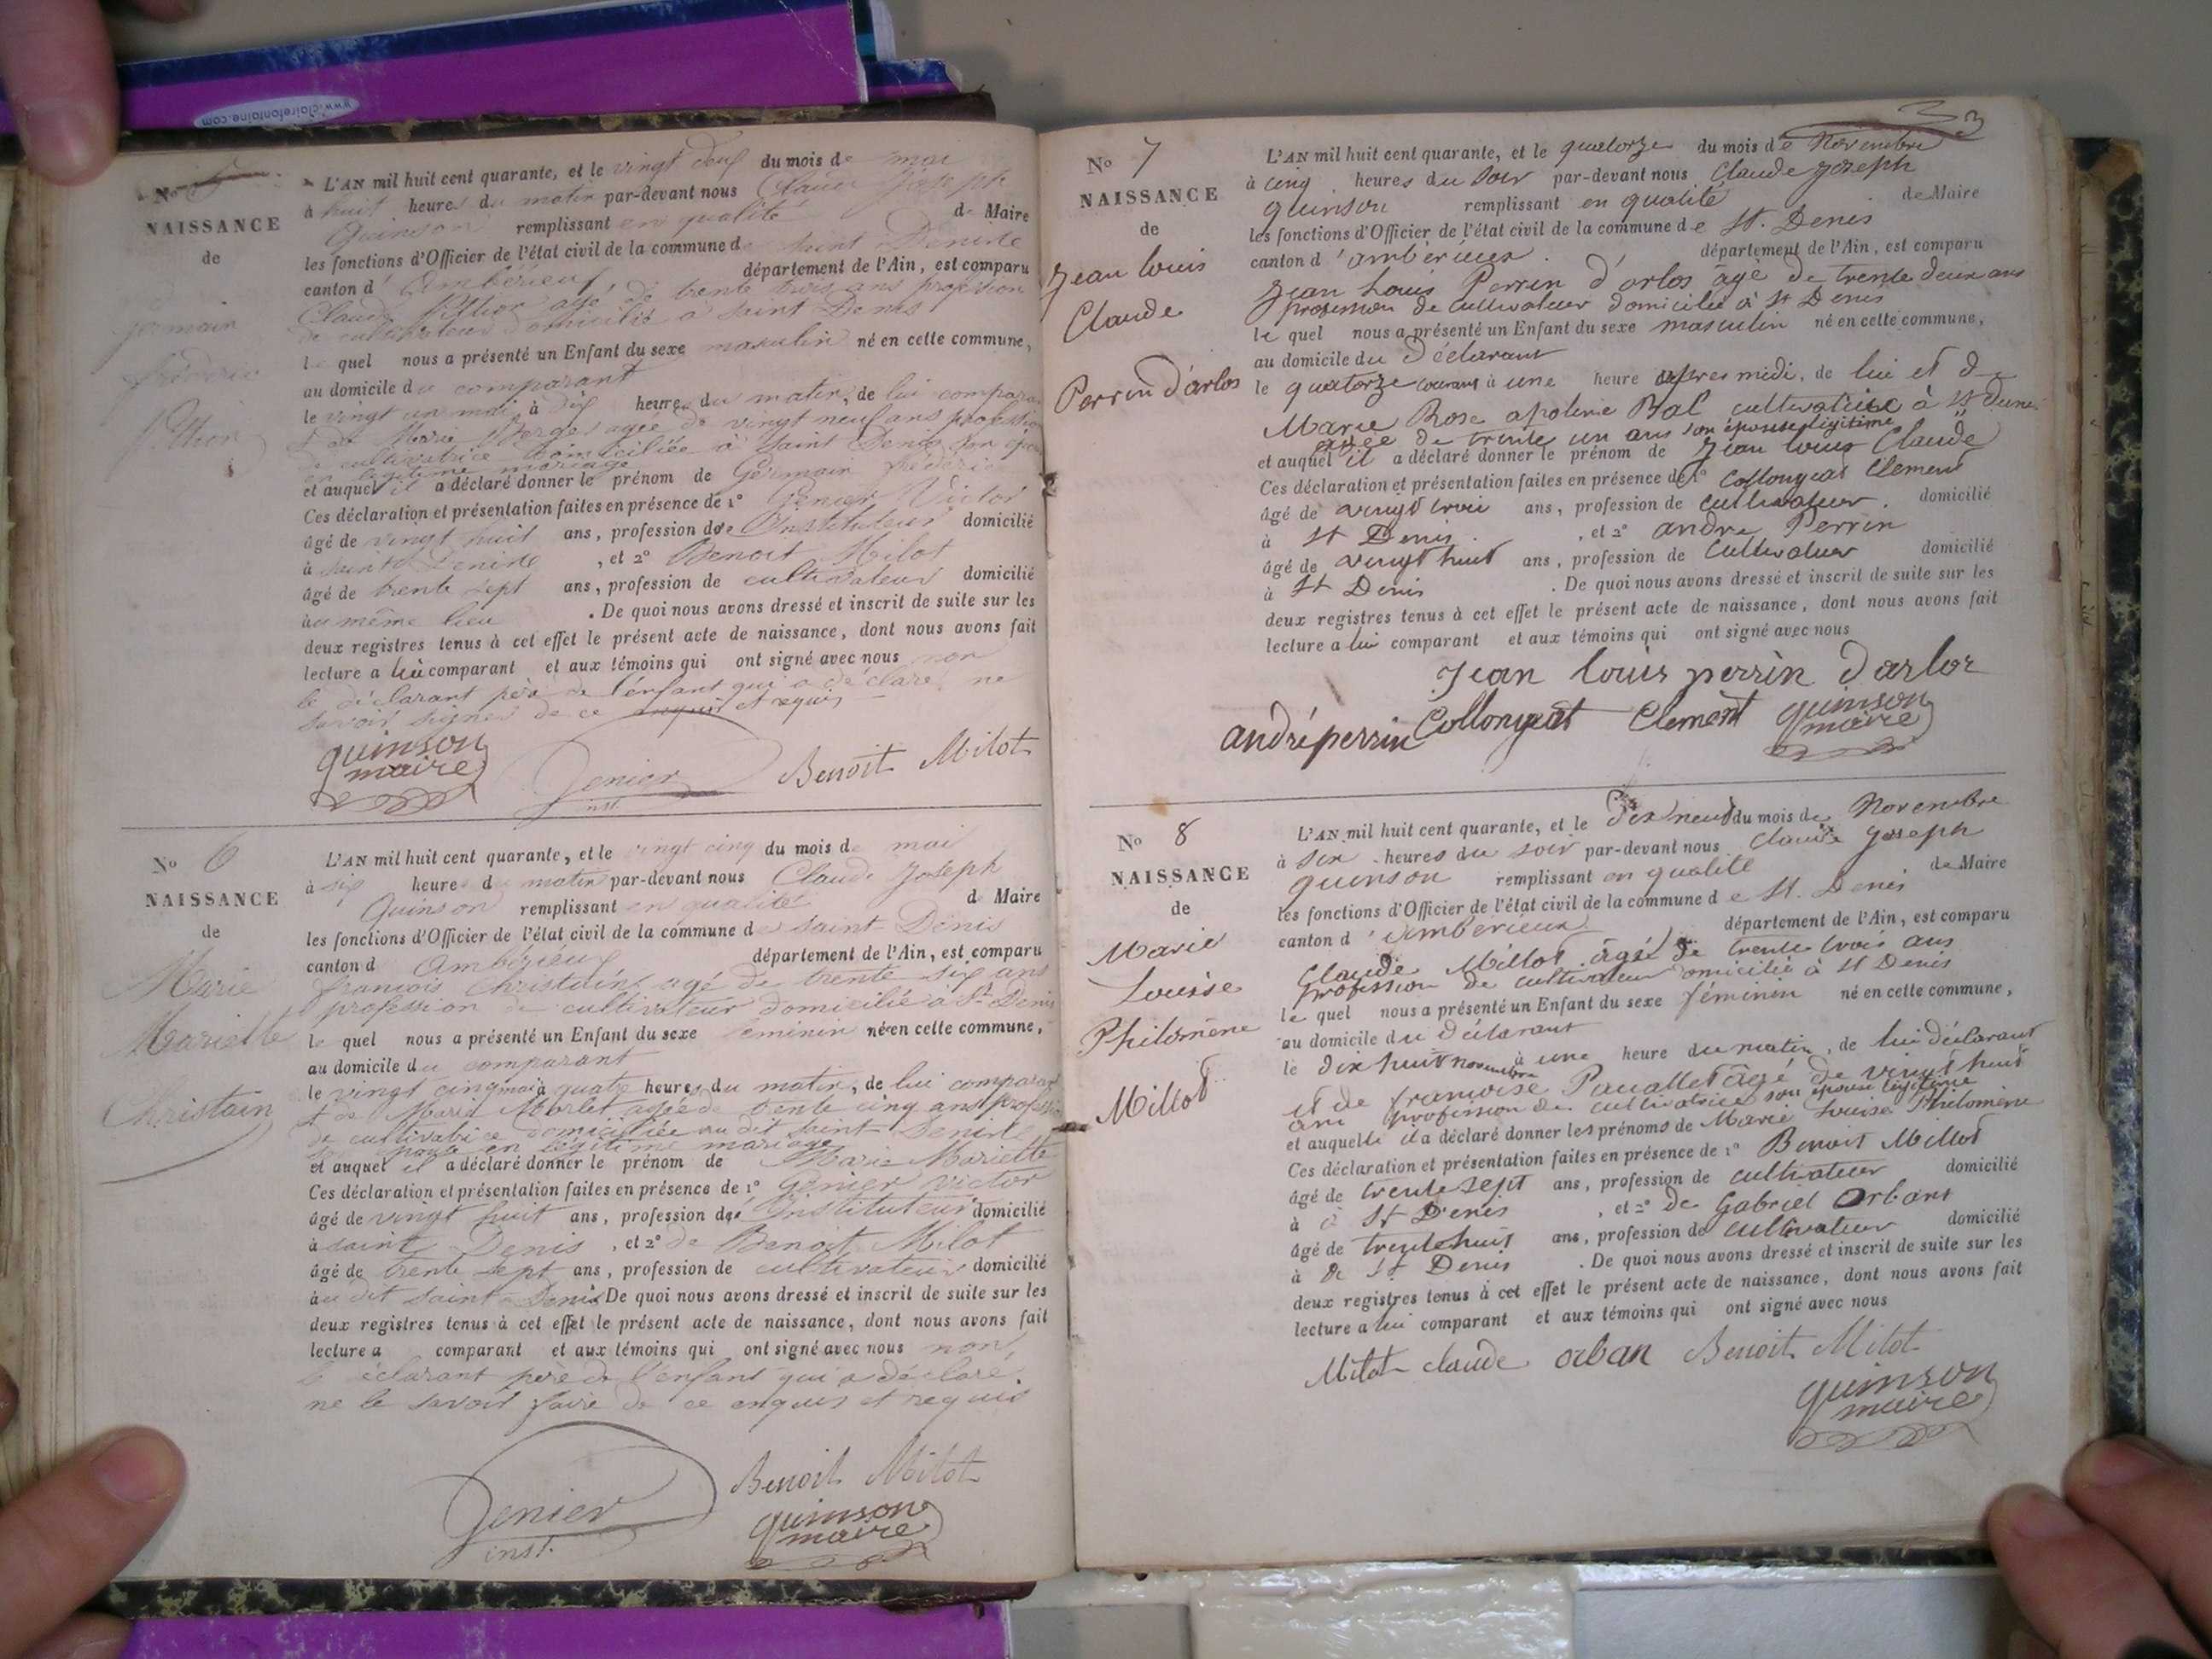 www.clairefontaine.com
No 5
NAISSANCE
de
Germain
frédéric
L'AN mil huit cent quarante, et le vingt deux du mois de mai
à huit heures du matin par-devant nous Claude Joseph
Quinson remplissant en qualité de Maire
les fonctions d'Officier de l'état civil de la commune de saint Denis de
canton d'Ambérieux département de l'Ain, est comparu
Claude agé de trente trois ans profession
de cultivateur domicilié à saint Denis
le quel nous a présenté un Enfant du sexe masculin né en cette commune,
au domicile du comparant
le vingt un mai à dix heures du matin, de lui comparant
et de Marie Berger agée de vingt neuf ans profession
de cultivatrice domiciliée à saint Denis son
en légitime mariage
et auquel il a déclaré donner le prénom de Germain frédéric
Ces déclaration et présentation faites en présence de 1° Genier Victor
âgé de vingt huit ans, profession de Instituteur domicilié
à saint Denis de , et 2° Benoit Milot
âgé de trente sept ans, profession de cultivateur domicilié
au même lieu . De quoi nous avons dressé et inscrit de suite sur les
deux registres tenus à cet effet le présent acte de naissance, dont nous avons fait
lecture a lui comparant et aux témoins qui ont signé avec nous non
le déclarant père de l'enfant qui a déclaré ne
savoir signer de ce enquis et requis
quinson
maire
Genier
inst.
Benoit Milot
No 6
NAISSANCE
de
Marie
Mariette
Christain
L'AN mil huit cent quarante, et le vingt cinq du mois de mai
à six heures du matin par-devant nous Claude Joseph
Quinson remplissant en qualité de Maire
les fonctions d'Officier de l'état civil de la commune de saint Denis
canton d Ambérieux département de l'Ain, est comparu
françois Christain agé de trente six ans
profession de cultivateur domicilié à St Denis
le quel nous a présenté un Enfant du sexe féminin né en cette commune,
au domicile du comparant
le vingt cinq mai à quatre heures du matin, de lui comparant
et de Marie Morlet agée de trente cinq ans profession
de cultivatrice domiciliée au dit saint Denis de
son épouse en légitime mariage
et auquel il a déclaré donner le prénom de Marie Mariette
Ces déclaration et présentation faites en présence de 1° Genier Victor
âgé de vingt huit ans, profession de Instituteur domicilié
à saint Denis , et 2° de Benoit Milot
âgé de trente sept ans, profession de cultivateur domicilié
au dit saint Denis De quoi nous avons dressé et inscrit de suite sur les
deux registres tenus à cet effet le présent acte de naissance, dont nous avons fait
lecture a comparant et aux témoins qui ont signé avec nous non
le déclarant père de l'enfant qui a déclaré
ne le savoir faire de ce enquis et requis
Genier
inst.
Benoit Milot
quinson
maire
3
No 7
NAISSANCE
de
Jean louis
Claude
Perrin d'arlos
L'AN mil huit cent quarante, et le quatorze du mois de Novembre
à cinq heures du soir par-devant nous Claude joseph
quinson remplissant en qualité de Maire
les fonctions d'Officier de l'état civil de la commune de St. Denis
canton d'ambérieux département de l'Ain, est comparu
Jean Louis Perrin d'arlos âgé de trente deux ans
profession de cultivateur domicilié à St Denis
le quel nous a présenté un Enfant du sexe masculin né en cette commune,
au domicile du Déclarant
le quatorze courant à une heure après midi, de lui et de
Marie Rose apoline Bal cultivatrice à St Denis
agée de trente un ans son épouse légitime
et auquel il a déclaré donner le prénom de Jean louis Claude
Ces déclaration et présentation faites en présence de 1° Collongeat Clement
âgé de vingt trois ans, profession de cultivateur domicilié
à St Denis , et 2° andre Perrin
âgé de vingt huit ans, profession de Cultivateur domicilié
à St Denis . De quoi nous avons dressé et inscrit de suite sur les
deux registres tenus à cet effet le présent acte de naissance, dont nous avons fait
lecture a lui comparant et aux témoins qui ont signé avec nous
Jean louis perrin darlos
andré perrin Collongeat Clement quinson
maire
No 8
NAISSANCE
de
Marie
Louise
Philomène
Millot
L'AN mil huit cent quarante, et le Dix neuf du mois de Novembre
à six heures du soir par-devant nous Claude joseph
quinson remplissant en qualité de Maire
les fonctions d'Officier de l'état civil de la commune de St. Denis
canton d'ambérieux département de l'Ain, est comparu
Claude Millot âgé de trente trois ans
profession de cultivateur domicilié à St Denis
le quel nous a présenté un Enfant du sexe féminin né en cette commune,
au domicile du Déclarant
le dix huit novembre à une heure du matin, de lui déclarant
et de françoise âgé de vingt huit
ans profession de cultivatrice son épouse légitime
et auquelle il a déclaré donner les prénoms de Marie Louise Philomène
Ces déclaration et présentation faites en présence de 1° Benoit Millot
âgé de trente sept ans, profession de cultivateur domicilié
à à St Denis , et 2° de Gabriel Orban
âgé de trente huit ans, profession de cultivateur domicilié
à St Denis . De quoi nous avons dressé et inscrit de suite sur les
deux registres tenus à cet effet le présent acte de naissance, dont nous avons fait
lecture a lui comparant et aux témoins qui ont signé avec nous
Milot claude orban Benoit Milot
quinson
maire